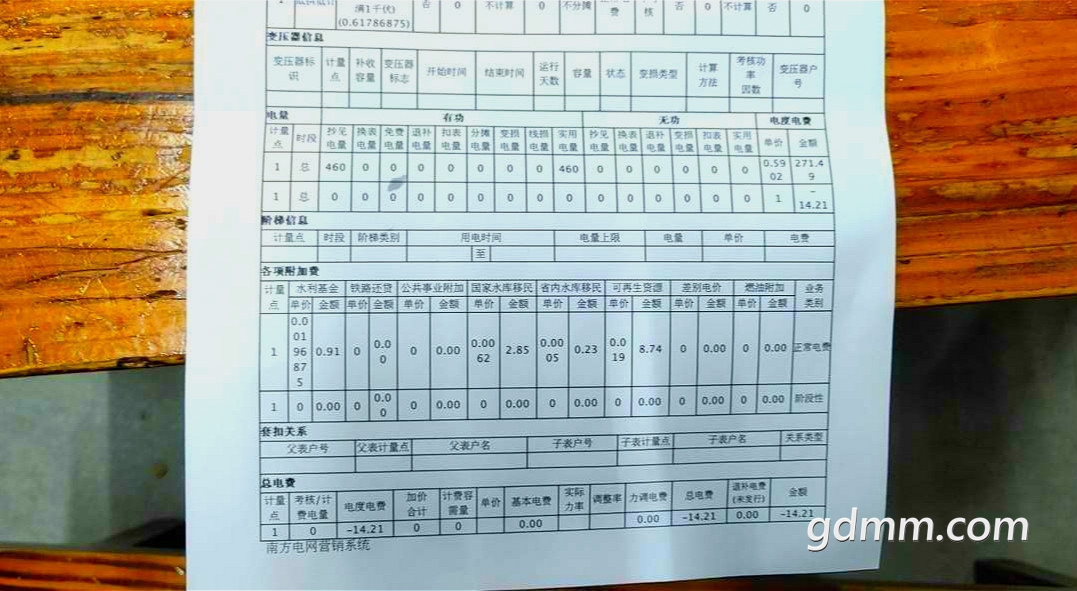 1 满1千伏) 否 0 不计算 0 不分摊 费 核 否 0 不计算 否 0
(0.61786875)
变压器信息
变压器标识 计量点 补收容量 变压器标志 开始时间 结束时间 运行天数 容量 状态 变损类型 计算方法 考核功率因数 变压器户号
电量 有功 无功 电度电费
计量点 时段 抄见电量 换表电量 免费电量 退补电量 扣表电量 分摊电量 变损电量 线损电量 实用电量 抄见电量 换表电量 退补电量 变损电量 扣表电量 实用电量 单价 金额
1 总 460 0 0 0 0 0 0 0 460 0 0 0 0 0 0 0.5902 271.49
1 总 0 0 0 0 0 0 0 0 0 0 0 0 0 0 0 1 -14.21
阶梯信息
计量点 时段 阶梯类别 用电时间 电量上限 电量 单价 电费
至
各项附加费
计量点 水利基金 铁路还贷 公共事业附加 国家水库移民 省内水库移民 可再生资源 差别电价 燃油附加 业务类别
单价 金额 单价 金额 单价 金额 单价 金额 单价 金额 单价 金额 单价 金额 单价 金额
1 0.00196875 0.91 0 0.00 0 0.00 0.0062 2.85 0.0005 0.23 0.019 8.74 0 0.00 0 0.00 正常电费
1 0 0.00 0 0.00 0 0.00 0 0.00 0 0.00 0 0.00 0 0.00 0 0.00 阶段性
套扣关系
父表户号 父表计量点 父表户名 子表户号 子表计量点 子表户名 关系类型
总电费
计量点 考核/计费电量 电度电费 加价合计 计费容需量 单价 基本电费 实际力率 调整率 力调电费 总电费 退补电费(未发行) 金额
1 0 -14.21 0 0 0.00 0.00 -14.21 0.00 -14.21
南方电网营销系统
gdmm.com